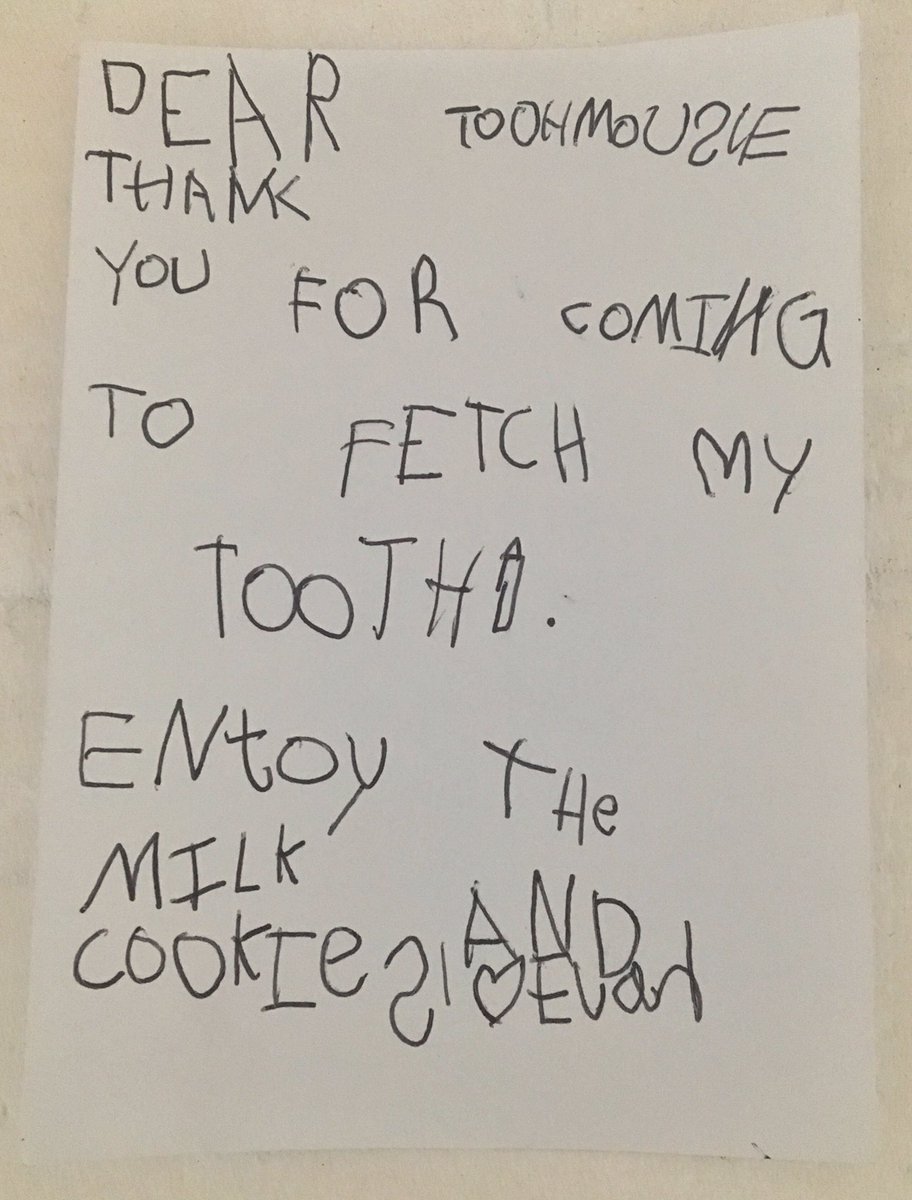 DEAR TOOHMOUSIE
THANK
YOU FOR COMING
TO FETCH MY
TOOTH.
ENtOY THe
MILK
COOKIeS AND
♡ EVan